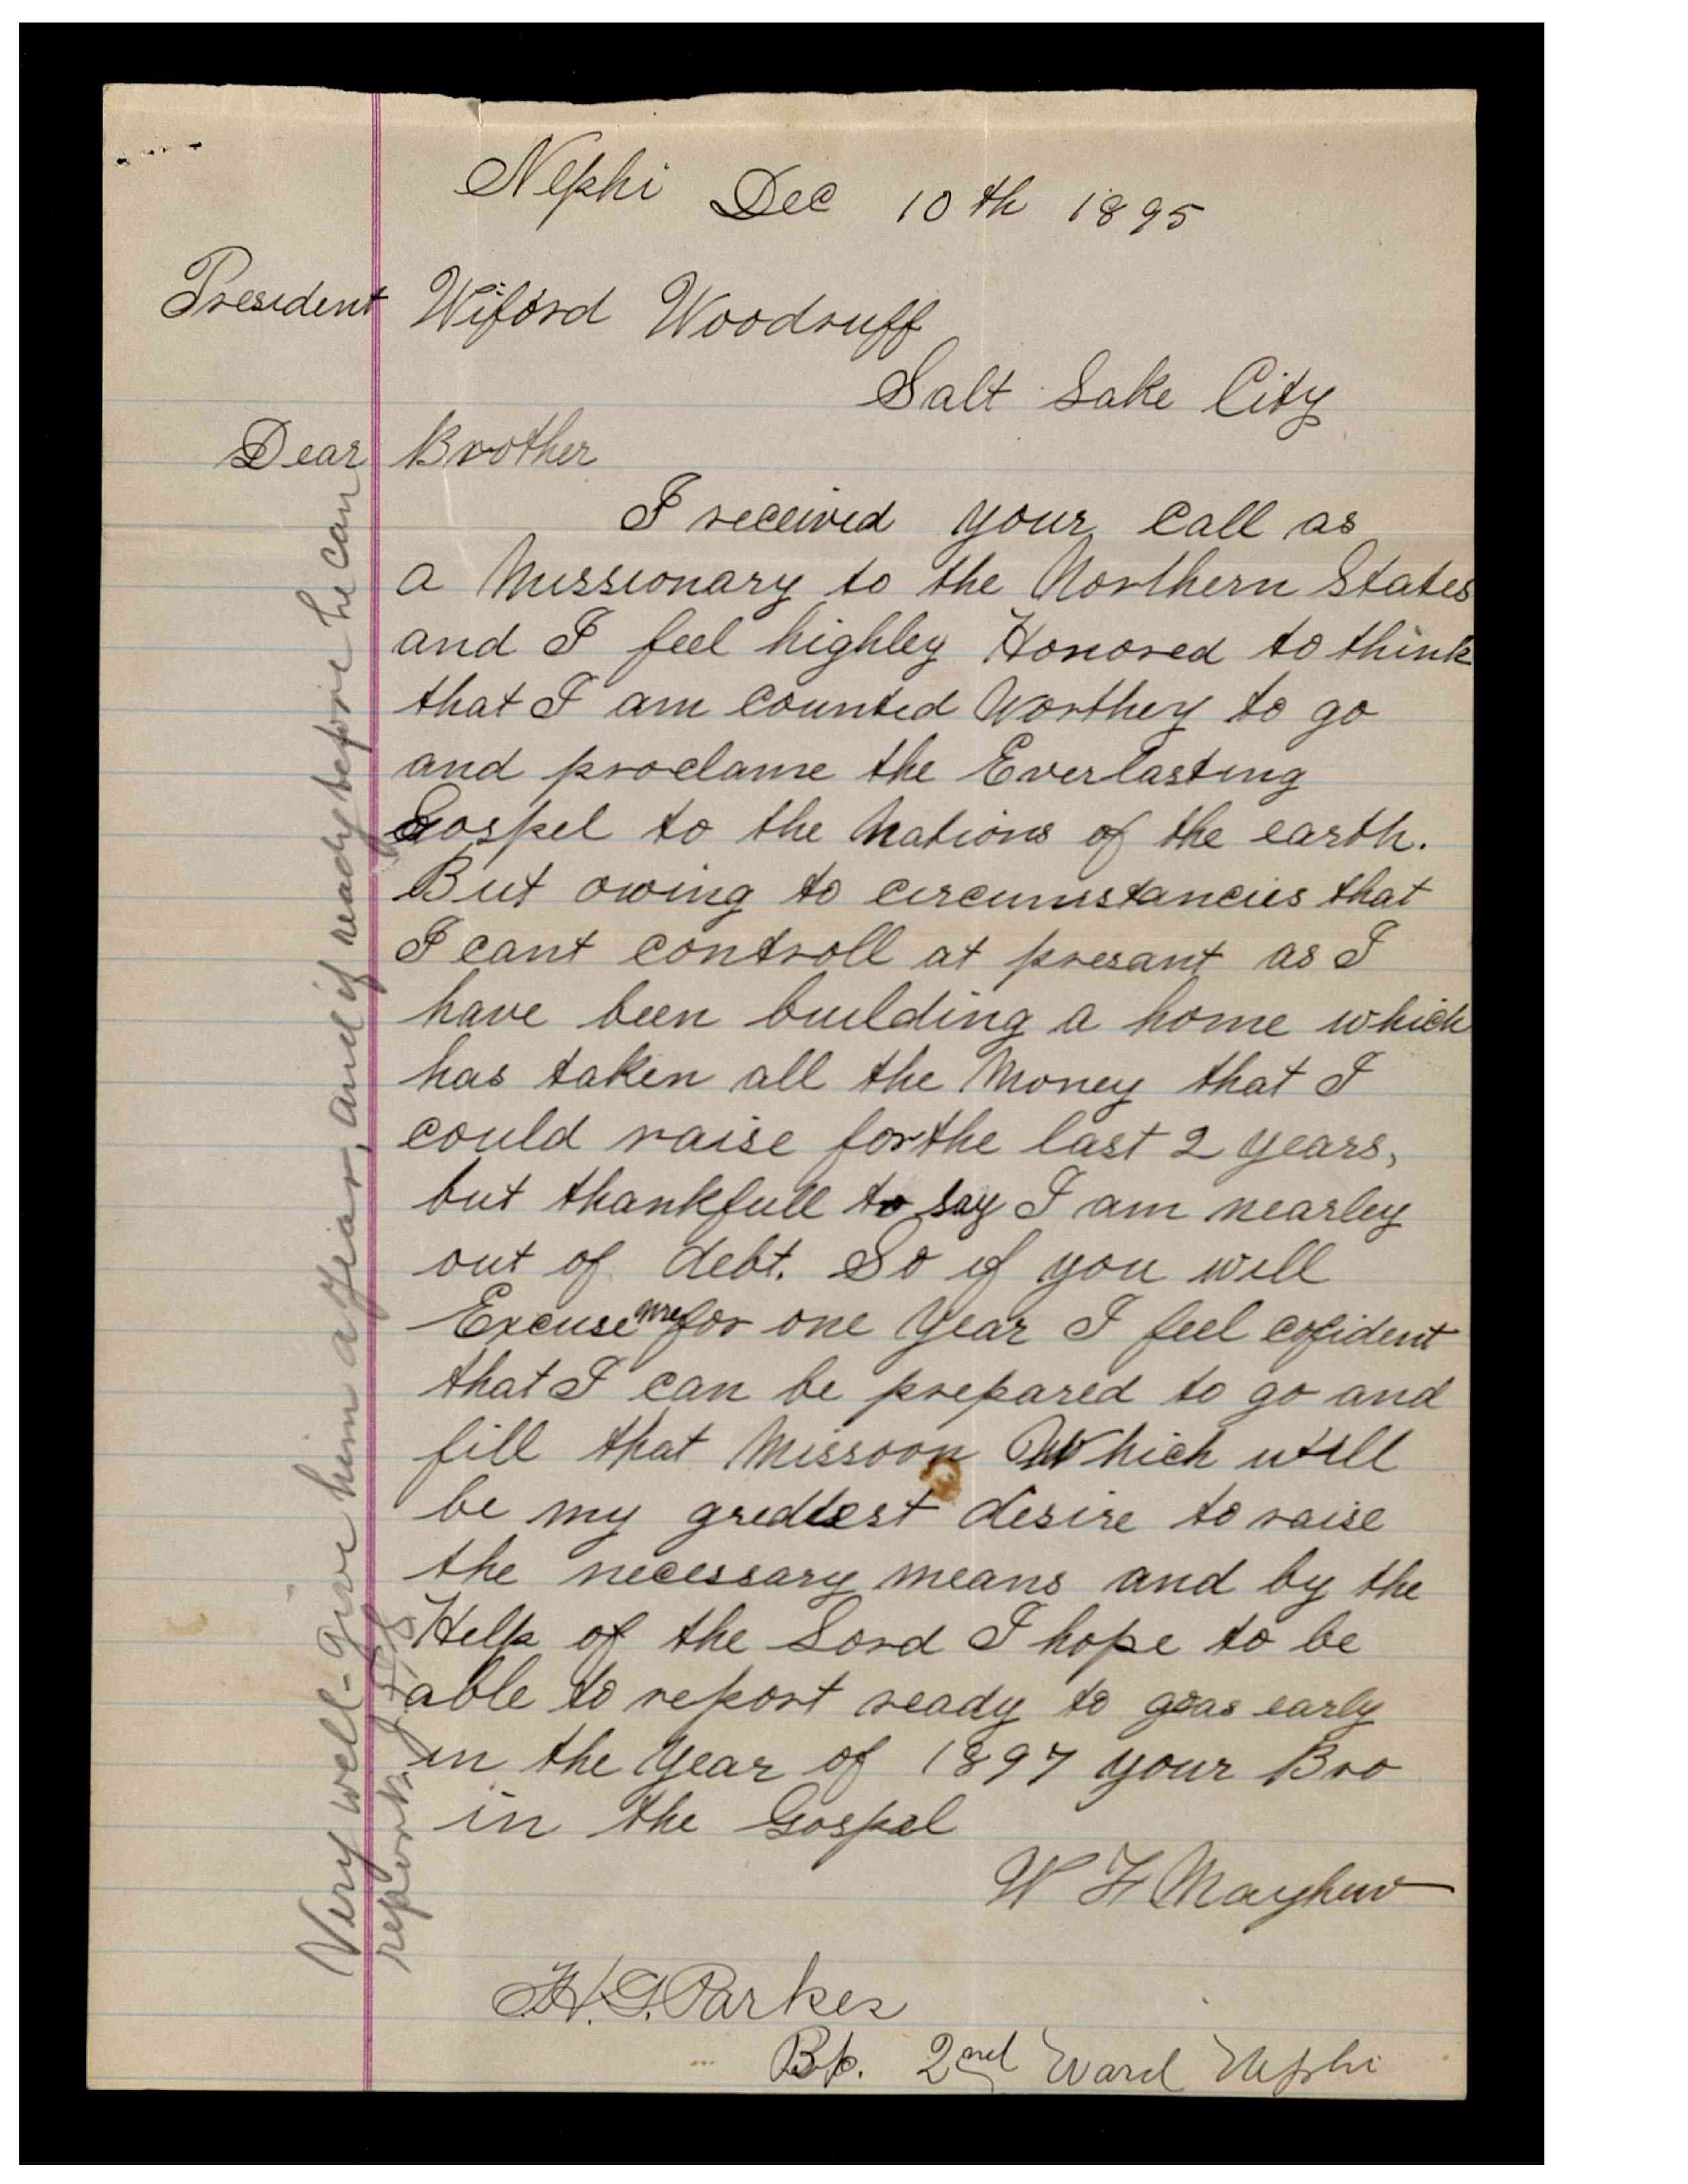 Nephi Dec 10th 1895
President Wiford Woodruff
Salt Lake City
Dear Brother
I received your call as
a Missionary to the Northern States
and I feel highley Honored to think
that I am counted Worthey to go
and proclame the Everlasting
Gospel to the Nations of the earth.
But owing to circumstancies that
I cant controll at presant as I
have been building a home which
has taken all the Money that I
could raise for the last 2 years,
but thankfull to say I am nearley
out of debt. So if you will
Excuse me for one Year I feel cofident
that I can be prepared to go and
fill that Missoon Which will
be my gredtest desire to raise
the necessary means and by the
Help of the Lord I hope to be
able to report ready to go as early
in the Year of 1897 your Bro
in the Gospel
W F Mayhew
H. G. Parkes
Bp. 2nd Ward Nephi
Very well - Give him a year, and if ready before he can
report. J. F. S.